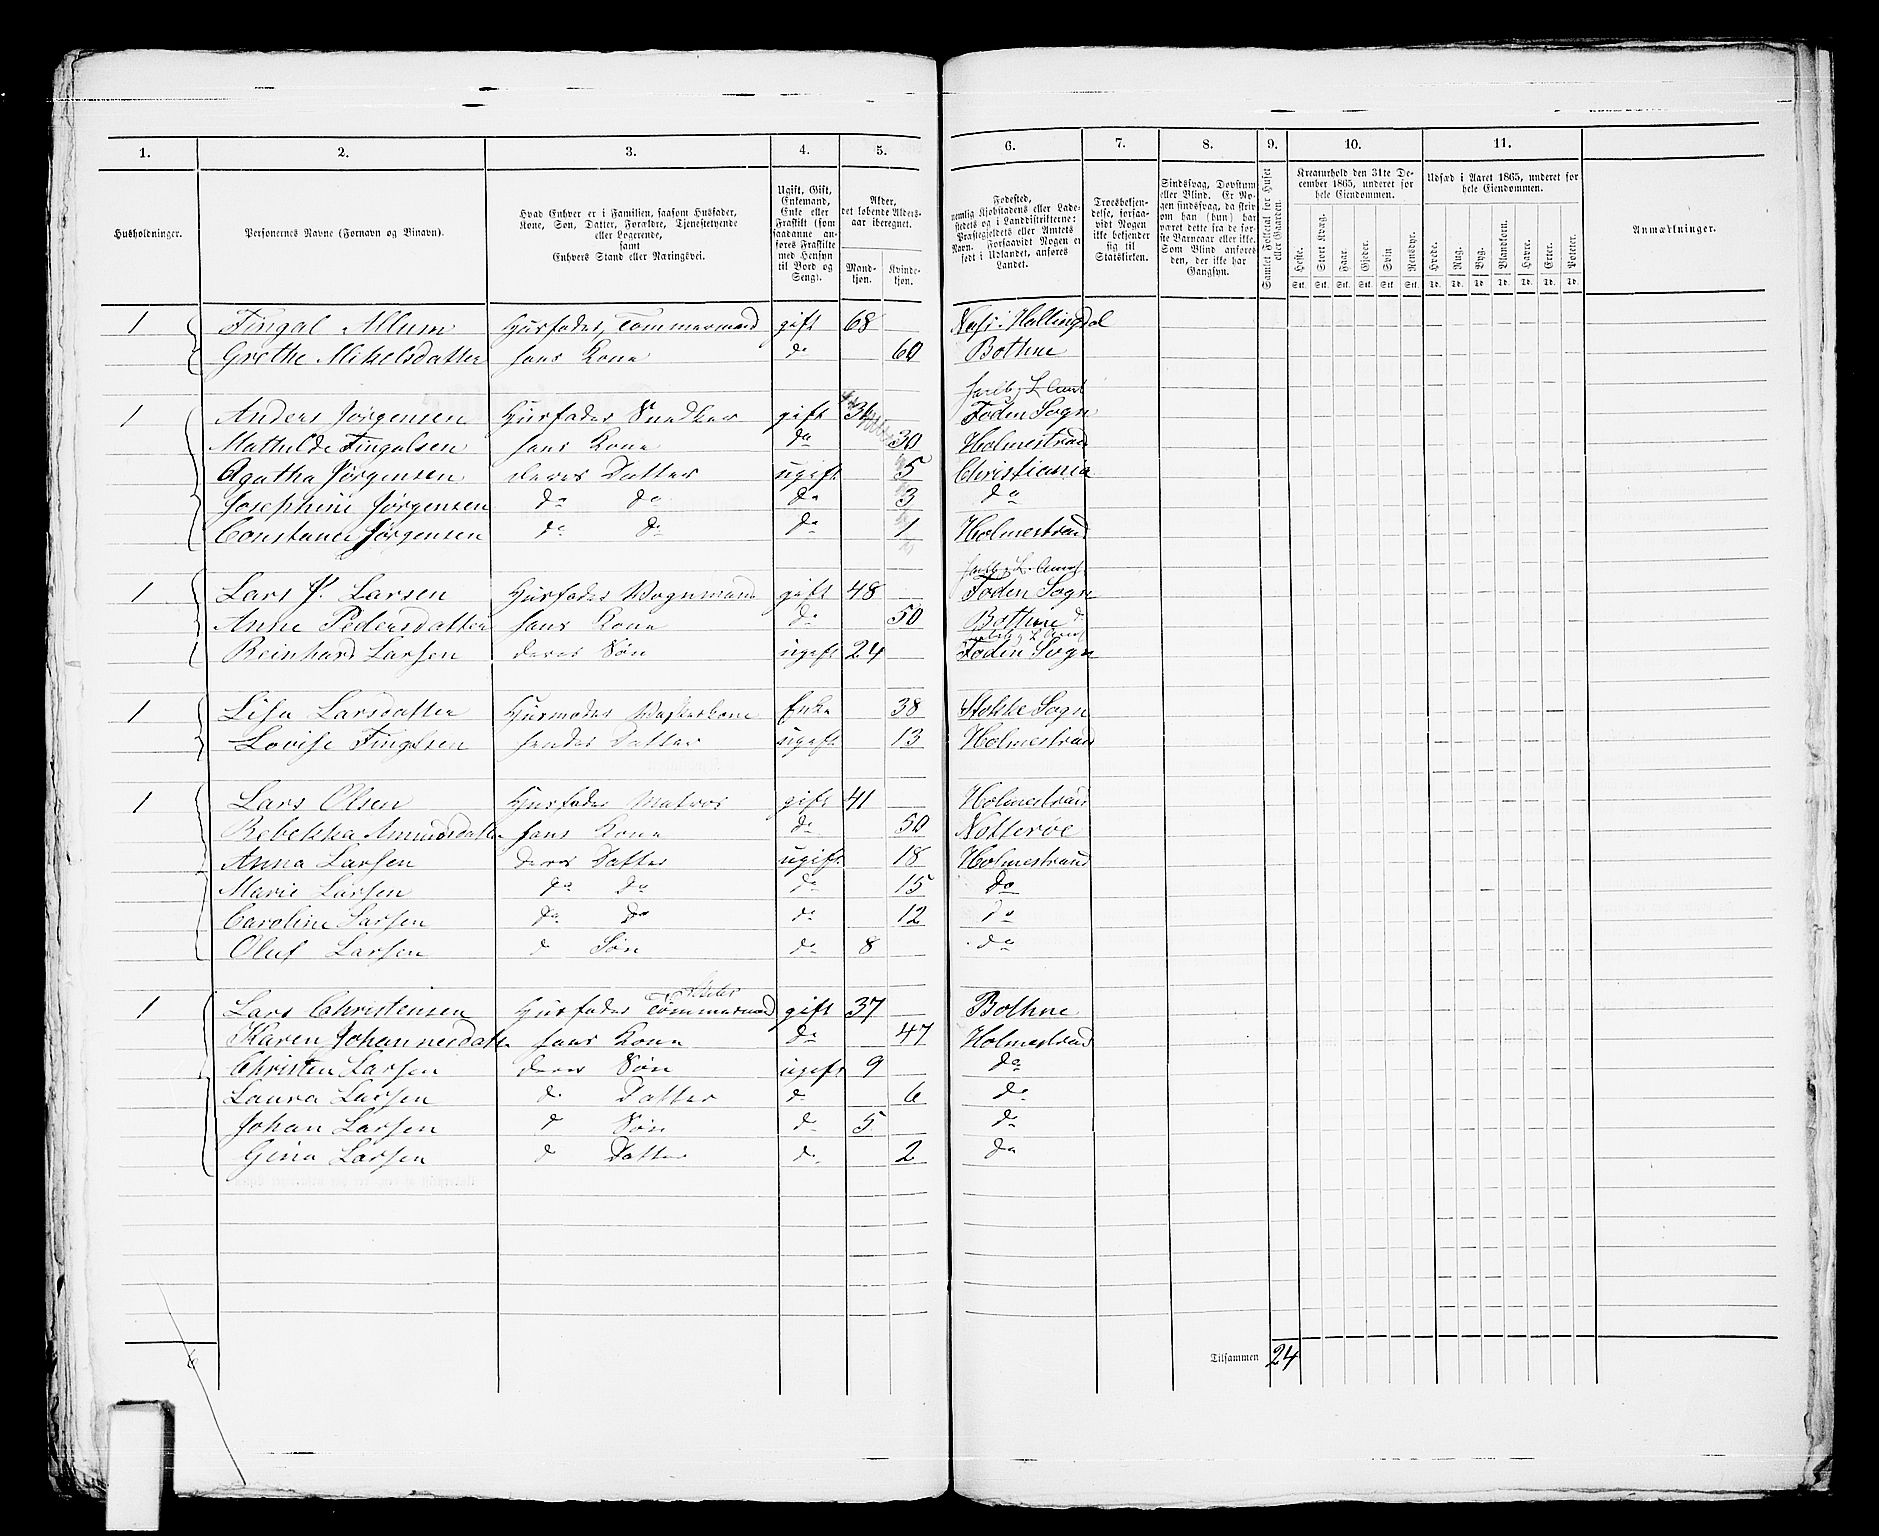 1. 2. 3. 4. 5. 6. 7. 8. 9. 10. 11.
Husholdninger.
Personernes Navne (Fornavn og Binavn).
Hvad Enhver er i Familien, saasom Husfader,
Kone, Søn, Datter, Forældre, Tjenestetyende
eller Logerende,
samt
Enhvers Stand eller Næringsvei.
Ugift, Gift,
Enkemand,
Enke eller
Fraskilt (som
saadanne an-
føres Fraskilte
med Hensyn
til Bord og
Seng).
Alder,
det løbende Alders-
aar iberegnet.
Mand-
kjøn.
Kvinde-
kjøn.
Fødested,
nemlig Kjøbstadens eller Lade-
stedets og i Landdistrikterne:
Præstegjeldets eller Amtets
Navn. Forsaavidt Nogen er
født i Udlandet, anføres
Landet.
Troesbekjen-
delse, forsaa-
vidt Nogen
ikke bekjender
sig til
Statskirken.
Sindssvag, Døvstum
eller Blind. Er No-
gen sindssvag, da skriv
om han (hun) har
været dette fra de før-
ste Barneaar eller ikke.
Som Blind anføres
den, der ikke har
Gangsyn.
Samlet Folketal for Huset
eller Gaarden.
Kreaturhold den 31te De-
cember 1865, underet for
hele Eiendommen.
Heste. Stort Kvæg. Faar. Gjeder. Svin Rensdyr.
Stk. Stk. Stk. Stk. Stk. Stk.
Udsæd i Aaret 1865, underet for
hele Eiendommen.
Hvede. Rug. Byg. Blandkorn. Havre. Erter. Poteter.
Td. Td. Td. Td. Td. Td. Td.
Anmærkninger.
1 Fingal Allum Husfader, Tømmermand gift 68 Næs i Hallingdal
Grethe Mikelsdatter hans Kone do 60 Bothne
1 Anders Jørgensen Husfader Snedker gift 36 Foden Sogn
Mathilde Fingalsen hans Kone do 30 Holmestrand
Agatha Jørgensen deres Datter ugift 5 Christiania
Josephine Jørgensen do do do 3 do
Constance Jørgensen do do do 1 Holmestrand
1 Lars P. Larsen Husfader Vognmand gift 48 Foden Sogn
Anne Pedersdatter hans Kone do 50 Bothne
Reinhard Larsen deres Søn ugift 24 Foden Sogn
1 Lisa Larsdatter Husmoder Vaskerkone Enke 38 Stokke Sogn
Lovise Fingalsen hendes Datter ugift 13 Holmestrand
1 Lars Olsen Husfader Matros gift 41 Holmestrand
Rebekka Amundsdatter hans Kone do 50 Nøtterøe
Anna Larsen deres Datter ugift 18 Holmestrand
Marie Larsen do do do 15 do
Caroline Larsen do do do 12 do
Oluf Larsen d Søn do 8 do
1 Lars Christensen Husfader Tømmermand gift 37 Bothne
Karen Johannesdatter hans Kone do 47 Holmestrand
Christen Larsen deres Søn ugift 9 do
Laura Larsen d Datter d 6 do
Johan Larsen d Søn do 5 do
Gina Larsen d Datter do 2 do
6 Tilsammen 24